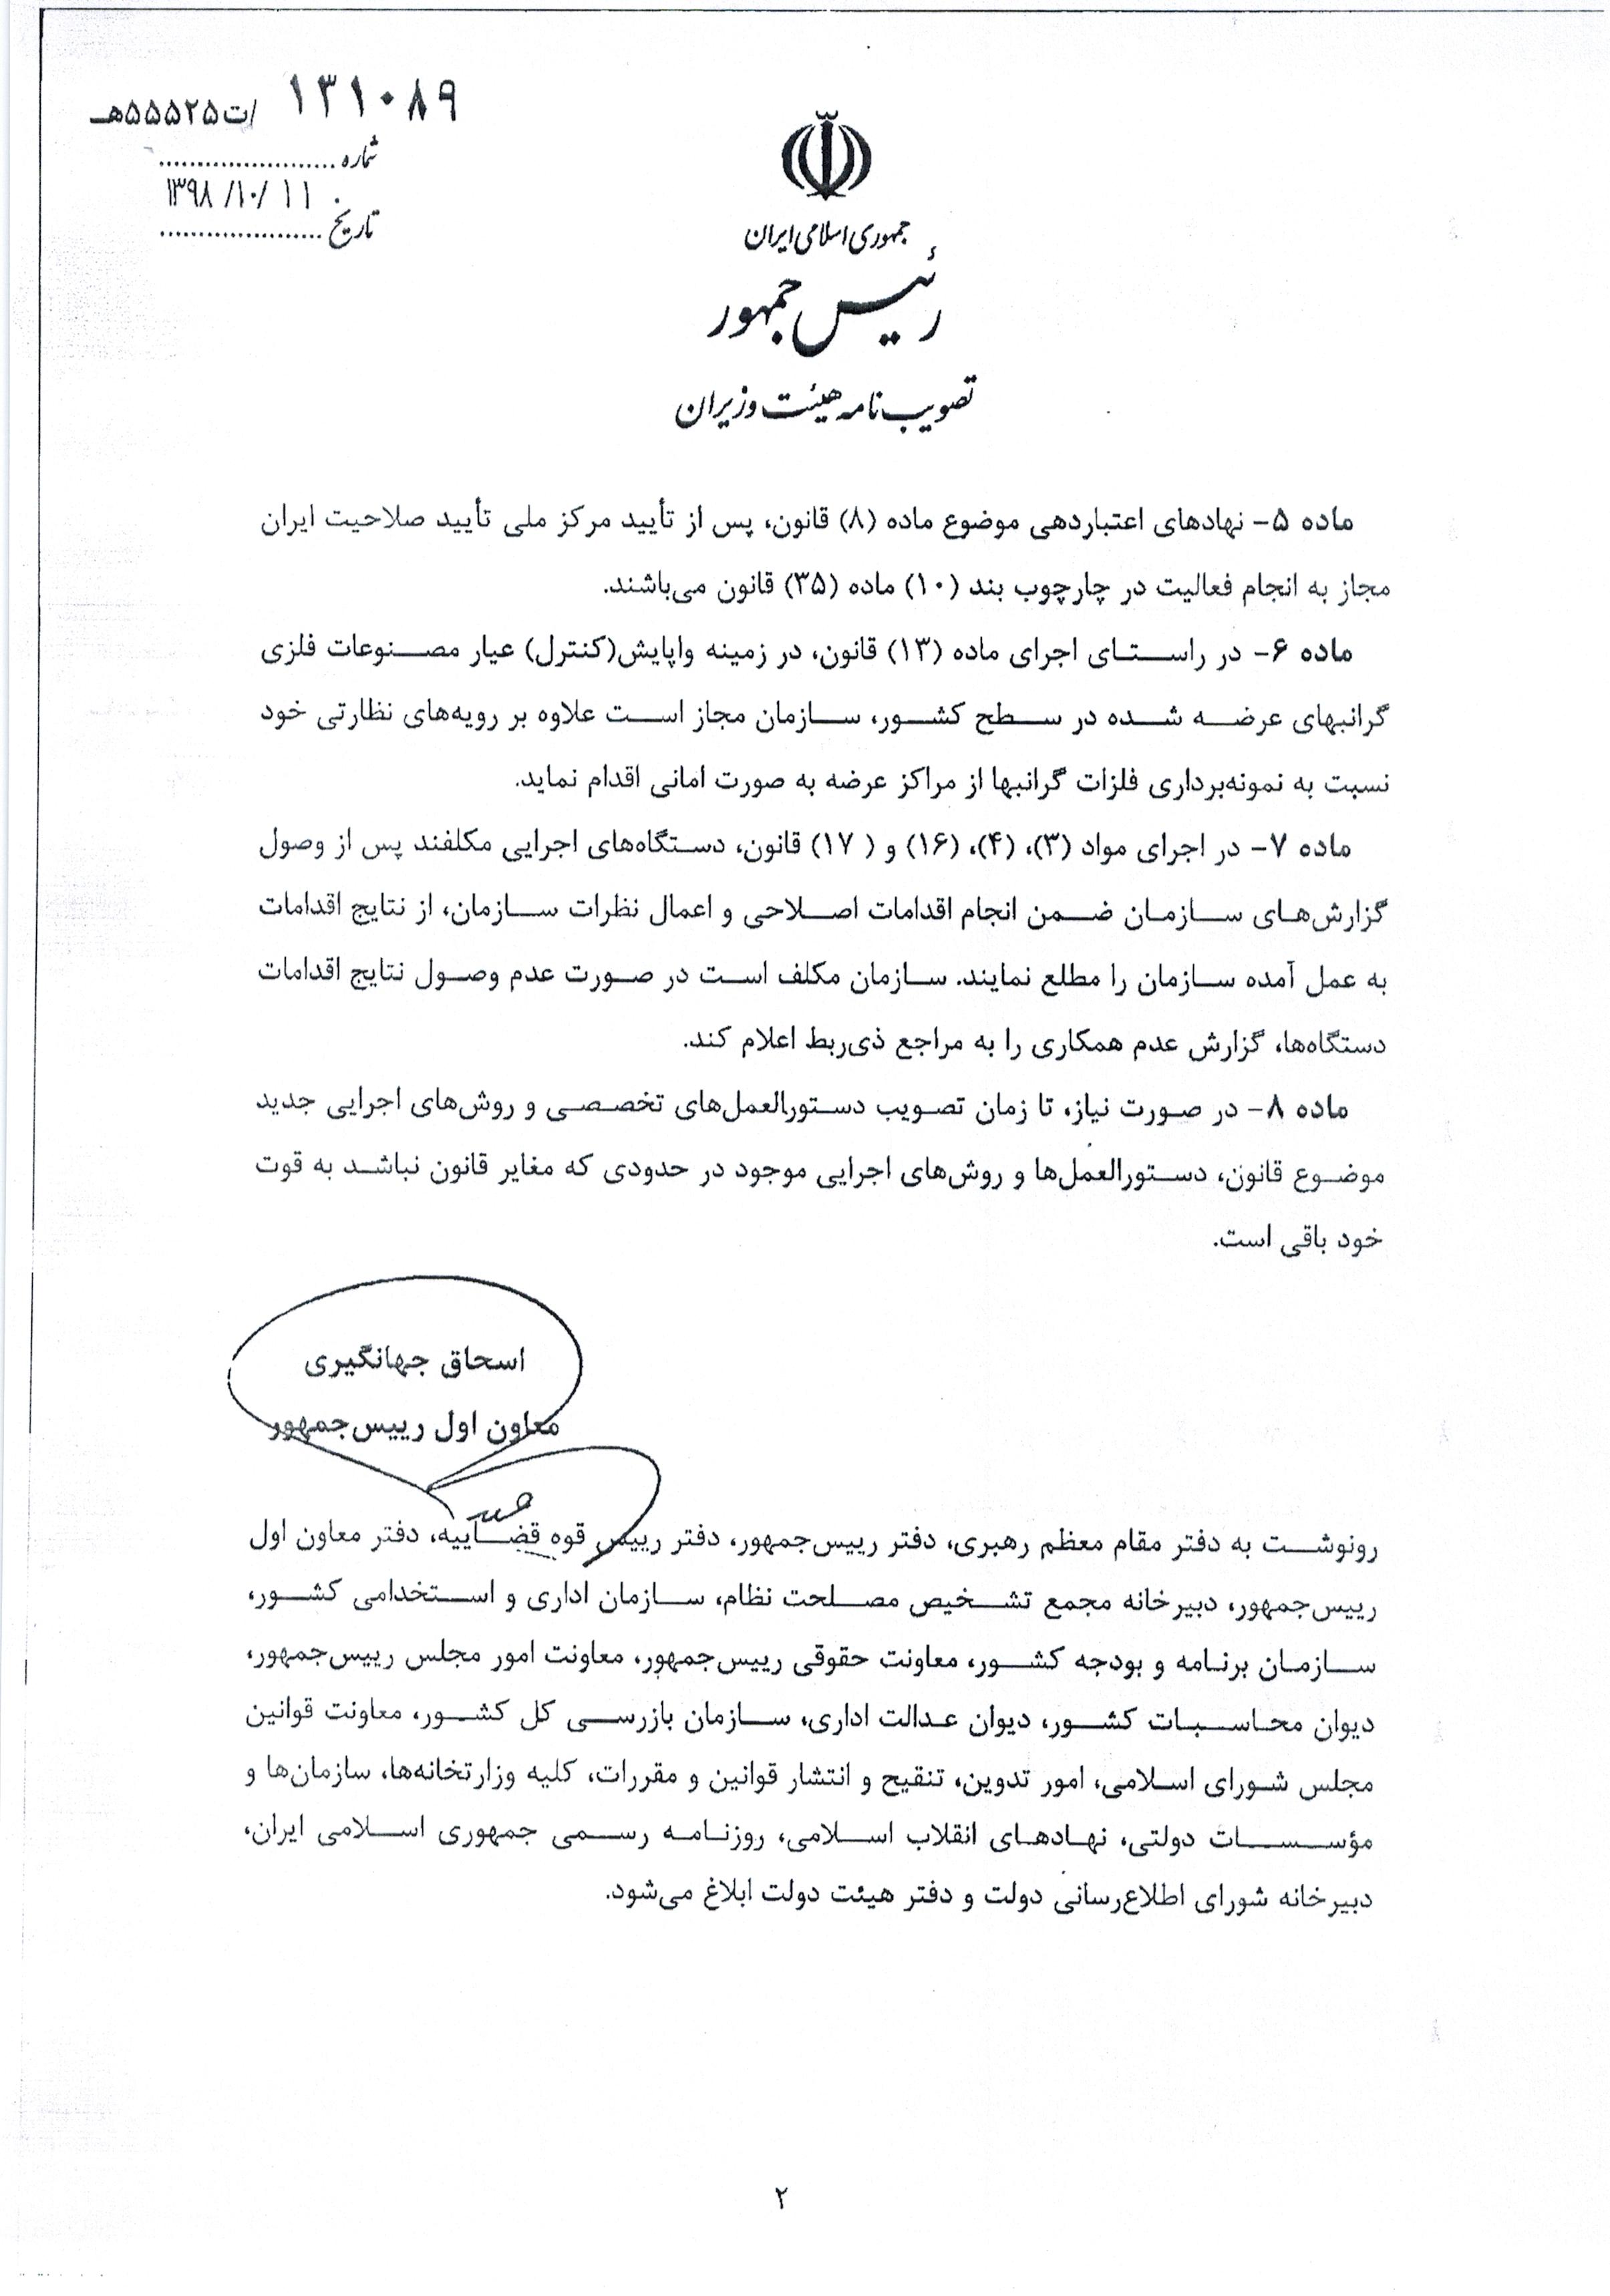 ۱۳۱۰۸۹ /ت۵۵۵۲۵هـ
شماره ......................
۱۳۹۸/۱۰/۱۱
تاریخ .....................
جمهوری اسلامی ایران
رئیس جمهور
تصویب نامه هیئت وزیران
ماده ۵- نهادهای اعتباردهی موضوع ماده (۸) قانون، پس از تأیید مرکز ملی تأیید صلاحیت ایران
مجاز به انجام فعالیت در چارچوب بند (۱۰) ماده (۳۵) قانون می‌باشند.
ماده ۶- در راستای اجرای ماده (۱۳) قانون، در زمینه واپایش(کنترل) عیار مصنوعات فلزی
گرانبهای عرضه شده در سطح کشور، سازمان مجاز است علاوه بر رویه‌های نظارتی خود
نسبت به نمونه‌برداری فلزات گرانبها از مراکز عرضه به صورت امانی اقدام نماید.
ماده ۷- در اجرای مواد (۳)، (۴)، (۱۶) و ( ۱۷) قانون، دستگاه‌های اجرایی مکلفند پس از وصول
گزارش‌های سازمان ضمن انجام اقدامات اصلاحی و اعمال نظرات سازمان، از نتایج اقدامات
به عمل آمده سازمان را مطلع نمایند. سازمان مکلف است در صورت عدم وصول نتایج اقدامات
دستگاه‌ها، گزارش عدم همکاری را به مراجع ذی‌ربط اعلام کند.
ماده ۸- در صورت نیاز، تا زمان تصویب دستورالعمل‌های تخصصی و روش‌های اجرایی جدید
موضوع قانون، دستورالعمل‌ها و روش‌های اجرایی موجود در حدودی که مغایر قانون نباشد به قوت
خود باقی است.
اسحاق جهانگیری
معاون اول رییس‌جمهور
رونوشت به دفتر مقام معظم رهبری، دفتر رییس‌جمهور، دفتر رییس قوه قضاییه، دفتر معاون اول
رییس‌جمهور، دبیرخانه مجمع تشخیص مصلحت نظام، سازمان اداری و استخدامی کشور،
سازمان برنامه و بودجه کشور، معاونت حقوقی رییس‌جمهور، معاونت امور مجلس رییس‌جمهور،
دیوان محاسبات کشور، دیوان عدالت اداری، سازمان بازرسی کل کشور، معاونت قوانین
مجلس شورای اسلامی، امور تدوین، تنقیح و انتشار قوانین و مقررات، کلیه وزارتخانه‌ها، سازمان‌ها و
مؤسسات دولتی، نهادهای انقلاب اسلامی، روزنامه رسمی جمهوری اسلامی ایران،
دبیرخانه شورای اطلاع‌رسانی دولت و دفتر هیئت دولت ابلاغ می‌شود.
۲